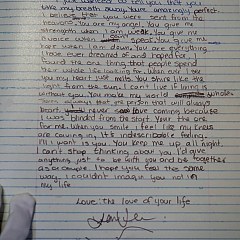 I wanted to tell you that you
take my breath away. You're what only perfect.
I believe that you were sent from the
heavens. You are my angel. You give me
strength when I am weak. You give me
words when speak. You give me
hope when I am down. You are everything
I have ever dreamed of and hoped for. I
found the one thing that people spend
their whole life looking for. When ever I see
you my heart just melts. You shine like the
light from the sun. I can't live if living is
without you. You make my world whole.
always that the person that will always
heart never see love coming because
I was blinded from the start. Your the one
for me. When you smile I feel like my knees
are caving in. It's indescribable feeling.
All I want is you. You keep me up all night.
I can't stop thinking about you. I'd give
anything just to be with you and be together
as a couple. I hope you feel the same
way. I couldn't imagine you not
my life

Love, the love of your life